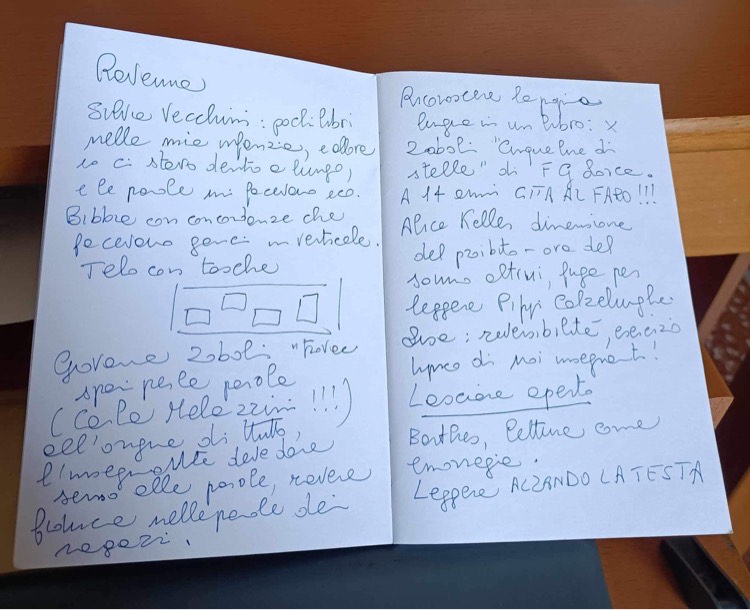 Ravenna
Silvia Vecchini: pochi libri
nelle mia infanzia, e allora
io ci stavo dentro a lungo,
e le parole mi facevano eco.
Bibbia con concordanze che
facevano ganci in verticale.
Telo con tasche
Giovanna Zoboli "Trovare
spazi per le parole
(Carla Melazzini !!!)
all'origine di tutto,
l'insegnante deve dare
senso alle parole, avere
fiducia nelle parole dei
ragazzi.
Riconoscere la propria
lingua in un libro: x
Zoboli "Cinque line di
stelle" di FG Lorca.
A 14 anni GITA AL FARO!!!
Alice Keller dimensione
del proibito - ora del
sonno altrui, fuga per
leggere Pippi Calzelunghe.
: reversibilità, esercizio
di noi insegnanti!
Lasciare aperto
Barthes, letture come
emorragie.
Leggere ALZANDO LA TESTA